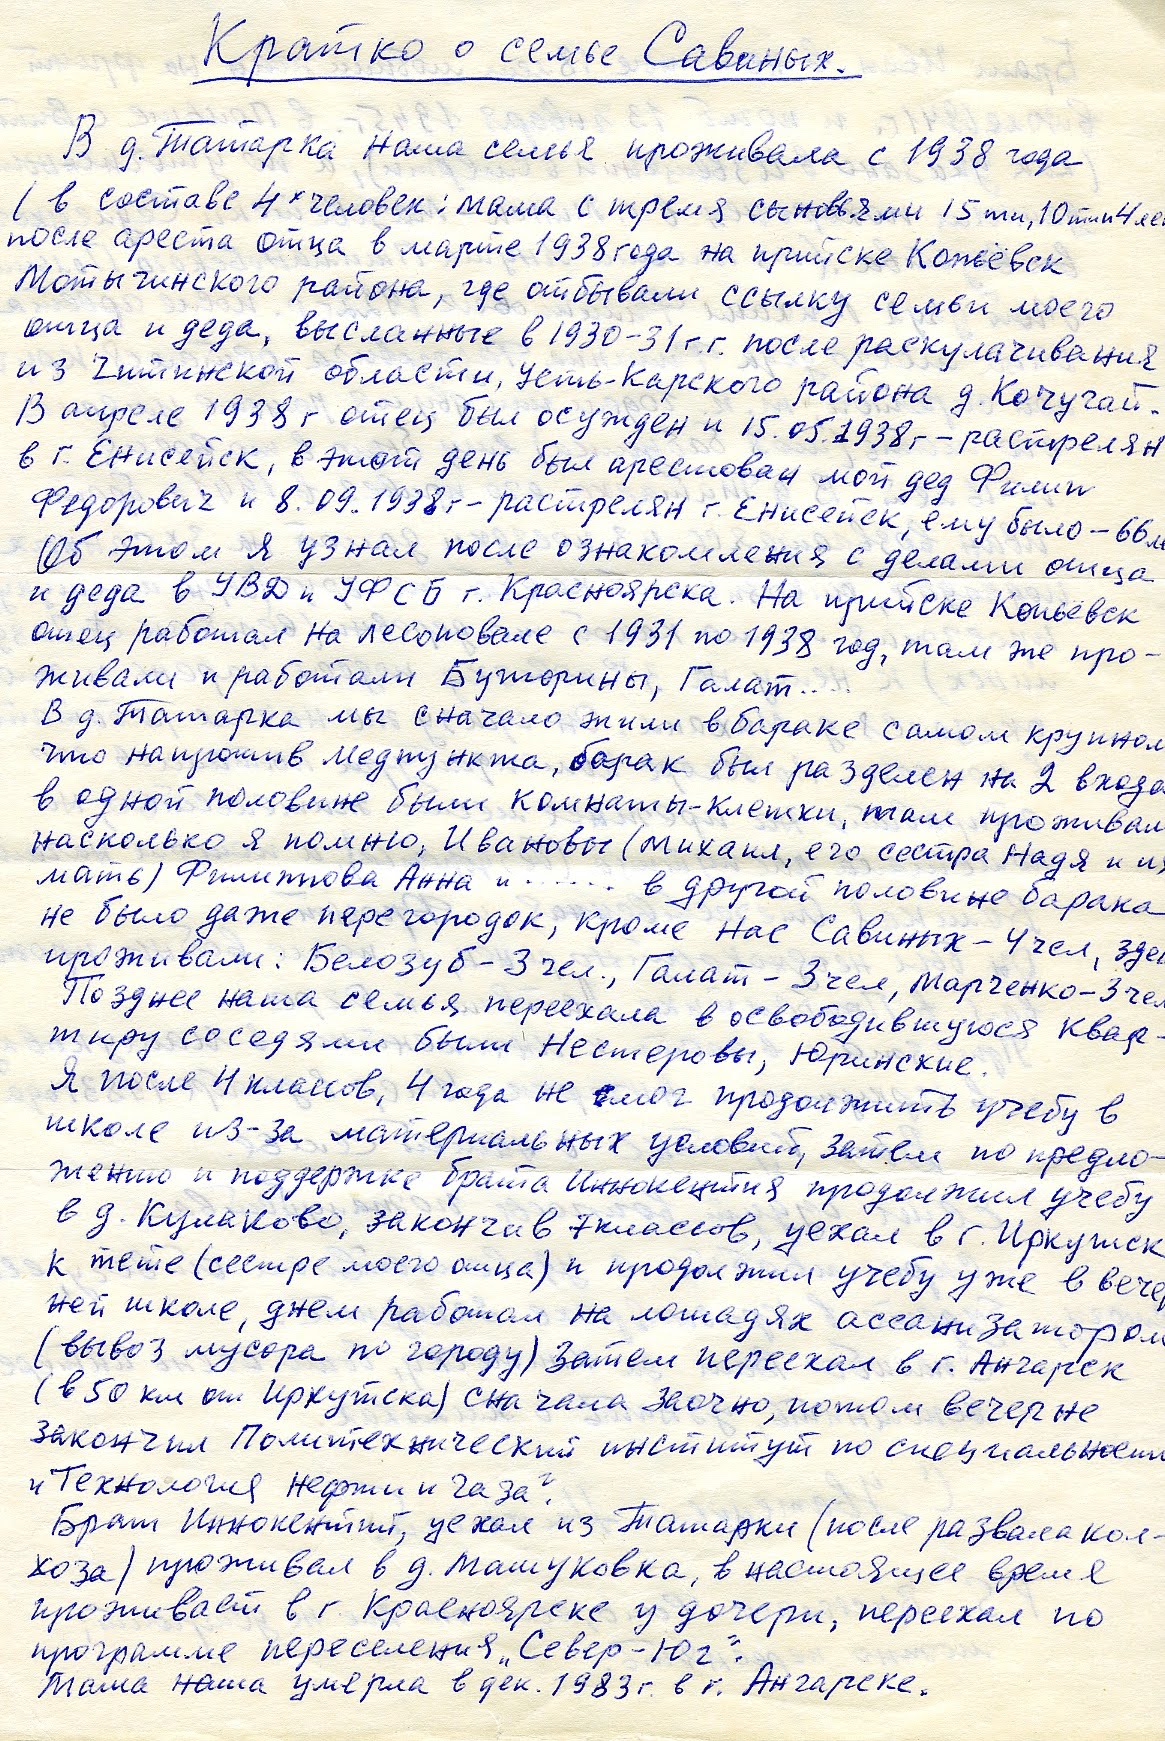 Кратко о семье Савиных.
В д. Татарка наша семья проживала с 1938 года
( в составе 4х человек: мама с тремя сыновьями 15ти, 10ти и 4 лет
после ареста отца в марте 1938 года на прииске Копьёвск
Мотыгинского района, где отбывали ссылку семьи моего
отца и деда, высланные в 1930-31 г.г. после раскулачивания
из Читинской области, Усть-Карского района д. Кочугай.
В апреле 1938 г отец был осужден и 15.05.1938 г - растрелян
в г. Енисейск, в этот день был арестован мой дед Филип
Федорович и 8.09.1938 г - растрелян г. Енисейск, ему было - 66 ле
Об этом я узнал после ознакомления с делами отца
и деда в УВД и УФСБ г. Красноярска. На прииске Копьёвск
отец работал на лесоповале с 1931 по 1938 год, там же про-
живали и работали Буторины, Галат....
В д. Татарка мы сначало жили в бараке самом крупном
что напротив медпункта, барак был разделен на 2 входа
в одной половине были комнаты-клетки, там проживали
насколько я помню, Ивановы (Михаил, его сестра Надя и их
мать) Филиппова Анна и ...... в другой половине барака
не было даже перегородок, кроме нас Савиных - 4 чел, здес
проживали: Белозуб - 3 чел., Галат - 3 чел, Марченко - 3 чел
Позднее наша семья переехала в освободившуюся квар-
тиру соседями были Нестеровы, Юринские.
Я после 4 классов, 4 года не смог продолжить учебу в
школе из-за материальных условий, затем по предло-
жению и поддержке брата Иннокентия продолжил учебу
в д. Кулаково, закончив 7 классов, уехал в г. Иркутск
к тете (сестре моего отца) и продолжил учебу уже в вечер
ней школе, днем работал на лошадях ассанизатором
(вывоз мусора по городу) Затем переехал в г. Ангарск
(в 50 км от Иркутска) сначала заочно, потом вечерне
закончил Политехнический институт по специальности
"Технология нефти и газа".
Брат Иннокентий, уехал из Татарки (после развала кол-
хоза) проживал в д. Машуковка, в настоящее время
проживает в г. Красноярске у дочери, переехал по
программе переселения „Север-Юг".
Мама наша умерла в дек. 1983 г. в г. Ангарске.